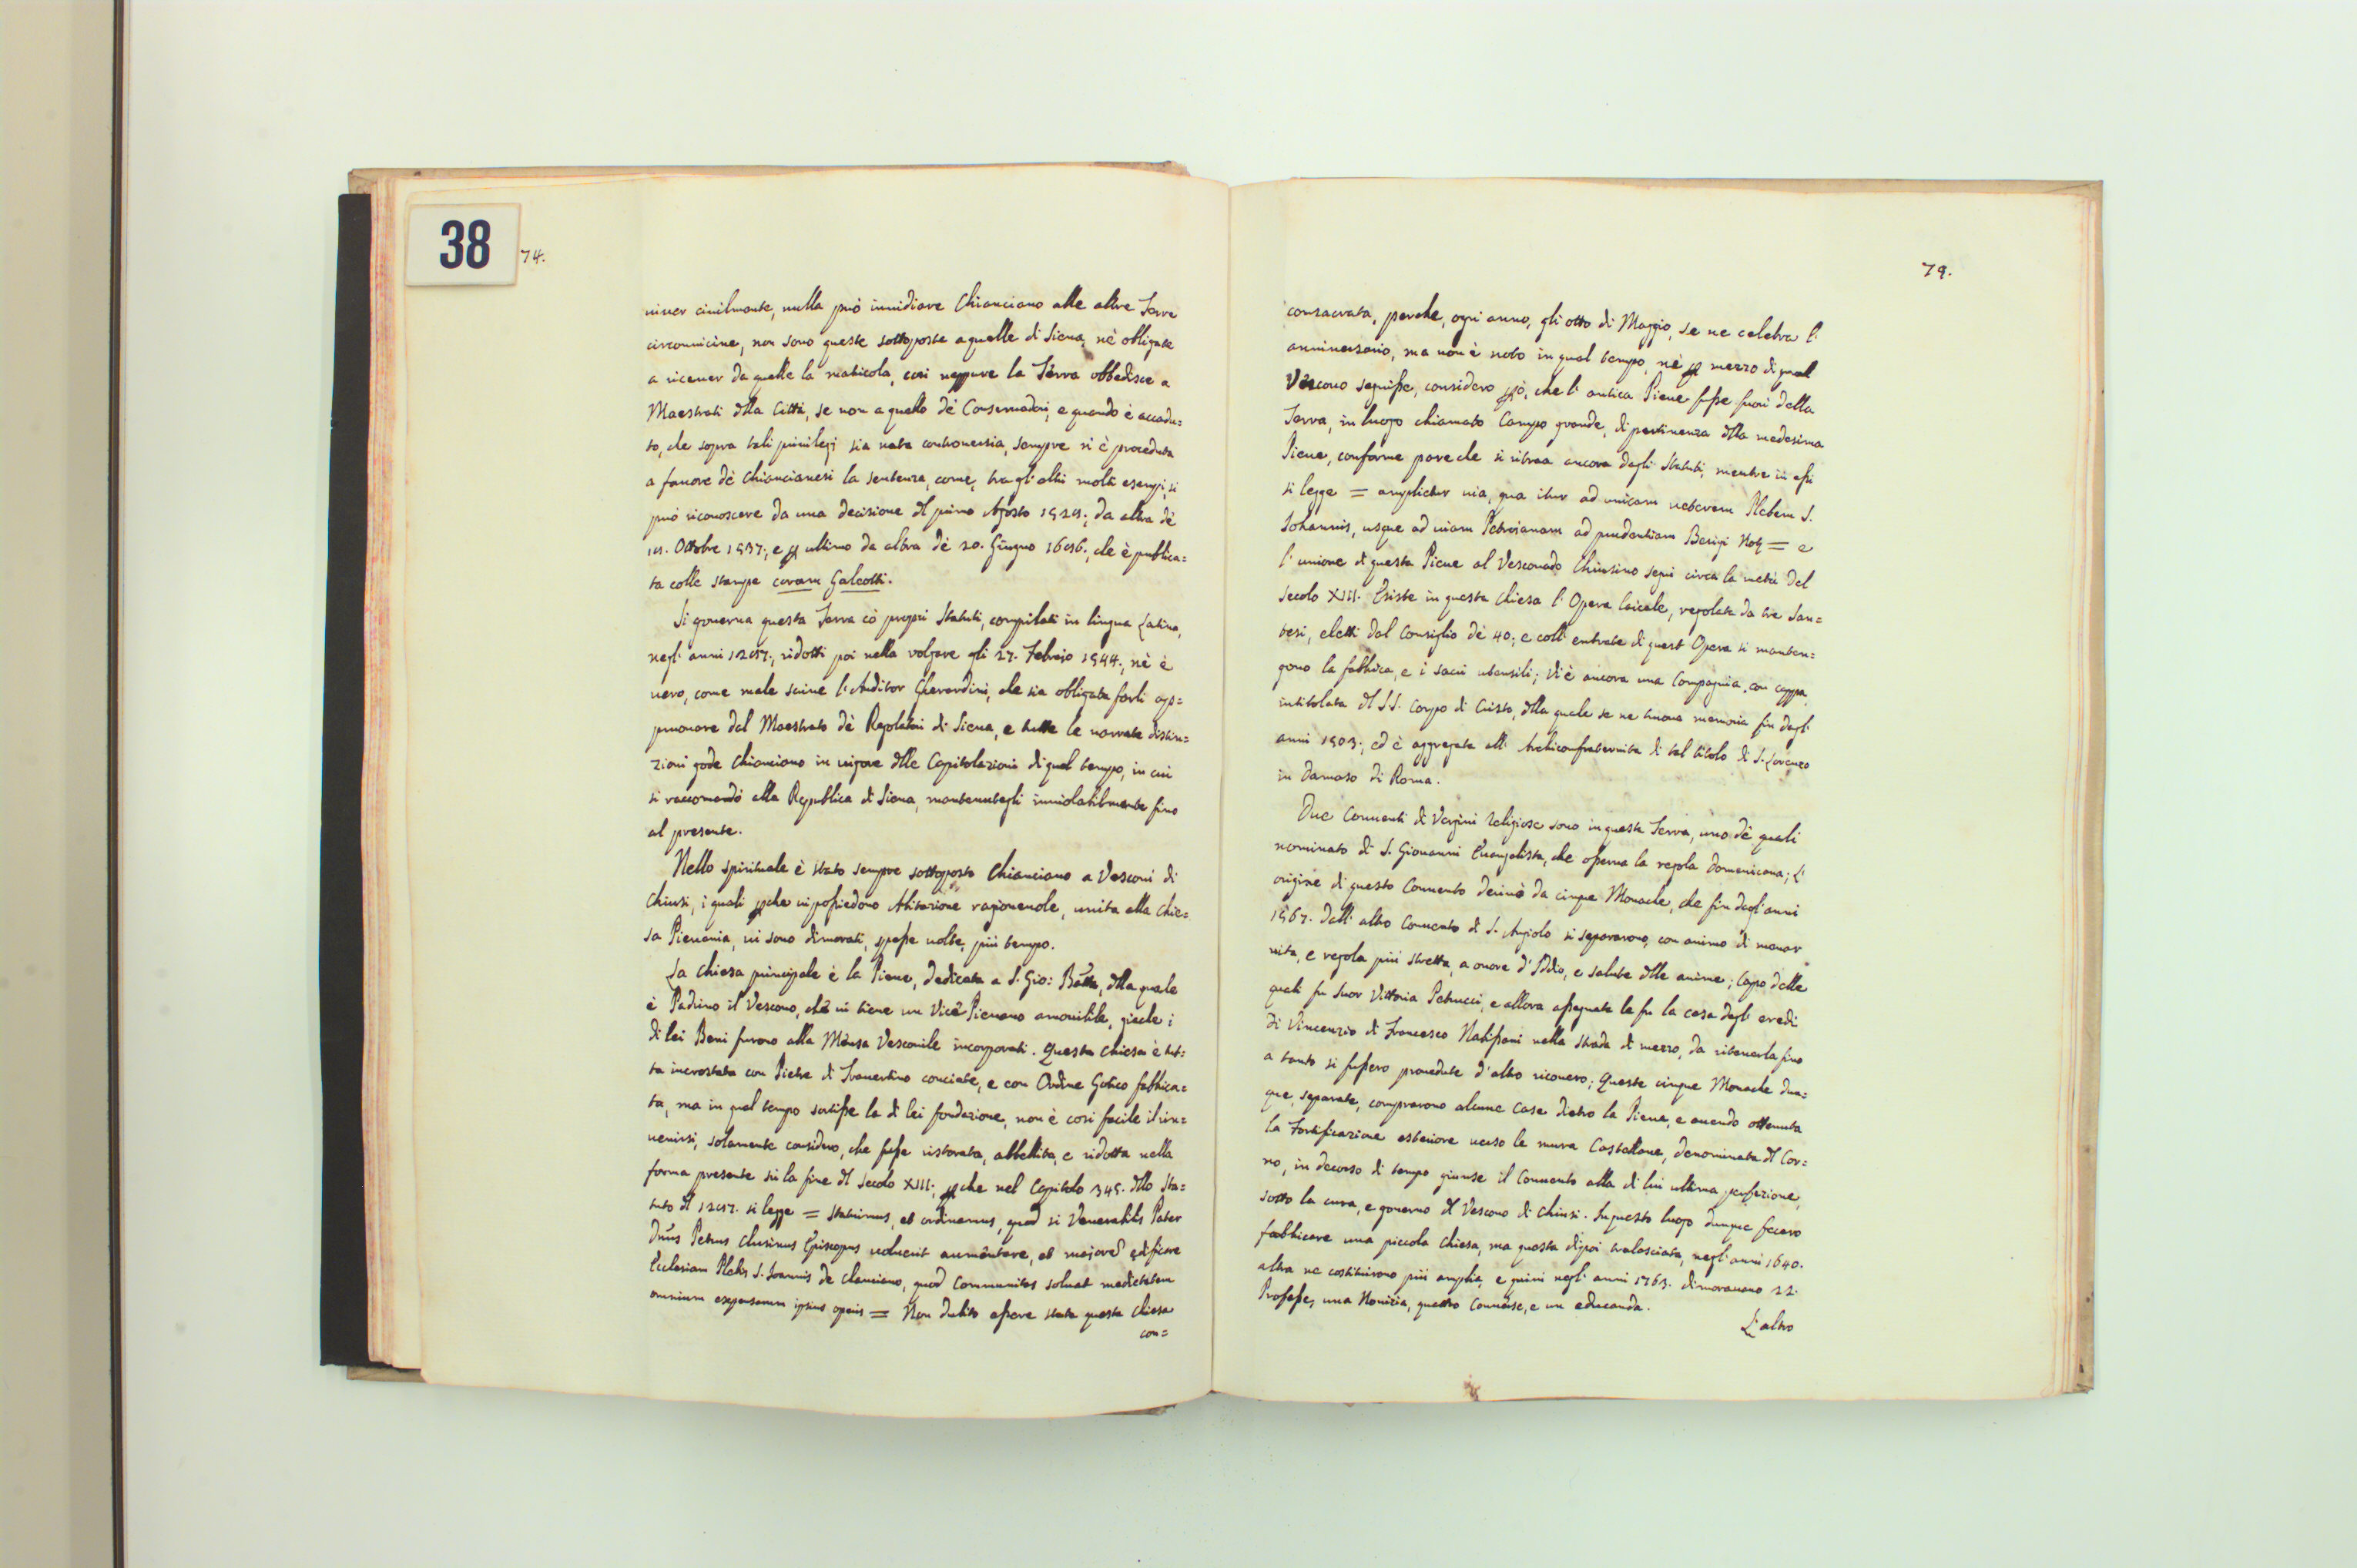 38
74.
viver civilmente, nulla può invidiare Chianciano alle altre Terre
circonvicine, non sono queste sottoposte a quelle di Siena, nè obligate
a ricever da quelle la matricola, così neppure la Terra obbedisce a
Maestrati della Città, se non a quello dè Conservadori, e quando è accadu=
to, che sopra tali privilegi sia nata controversia, sempre si è proceduta
a favore dè Chiancianesi la sentenza, come, tra gl'altri molti esempi, si
può riconoscere da una decisione del primo Agosto da altra dè
Ottobre 1537; e per ultimo da altra dè 20. Giugno che è publica=
ta colle stampe coram Galeotti.
Si governa questa Terra cò propri Statuti, compilati in lingua Latina,
negl'anni 1287; ridotti poi nella volgare gli 27. Febraio 1544; nè è
vero, come male scrive l'Auditor Gherardini, che sia obligata farli app=
provare dal Maestrato dè Regolatori di Siena, e tutte le narrate distin=
zioni gode Chianciano in vigore delle Capitolazioni di quel tempo, in cui
si raccomandò alla Republica di Siena, mantenutegli inviolabilmente fino
al presente.
Nello spirituale è stato sempre sottoposto Chianciano a Vescovi di
Chiusi, i quali perche vi possiedono Abitazione ragionevole, unita alla Chie=
sa Pievania, vi sono dimorati, spesse volte, più tempo.
La Chiesa principale è la Pieve, dedicata a S. Gio: Batta, della quale
è Padrino il Vescovo, che vi tiene un Vice Pievano amovibile, giache i
di lei Beni furono alla Mensa Vescovile incorporati. Questa chiesa è tut=
ta incrostata con Pietre di Travertino conciate, e con Ordine Gotico fabbrica=
ta, ma in qual tempo sortisse la di lei fondazione, non è così facile il rin=
venirsi, solamente considero, che fusse ristorata, abbellita, e ridotta nella
forma presente sù la fine del secolo XIII; perche nel Capitolo 345. dello Sta=
tuto del 1287. si legge = Statuimus, et ordinamus, quod si Venerabilis Pater
Dnus Petrus Clusinus Episcopus voluerit aumentare, et majorem edificare
Ecclesiam Plebis S. Joannis de Clanciano, quod Communitas solvat medietatem
omnium expensarum ipsius operis = Non dubito essere stata questa Chiesa
con=
79.
consacrata, perche, ogni anno, gli otto di Maggio, se ne celebra l'
anniversario, ma non è noto in qual tempo, nè per mezzo di qual
Vescovo seguisse, considero però, che l'antica Pieve fusse fuori della
Terra, in luogo chiamato Campo grande, di pertinenza della medesima
Pieve, conforme pare che si ritraa ancora dagli Statuti, mentre in essi
si legge = amplietur via, qua itur ad unicam veterem Plebem S.
Johannis, usque ad viam Petroianam ad prudentiam = e
l'unione di questa Pieve al Vescovado Chiusino seguì circa la metà del
secolo XIII. Esiste in questa chiesa l'Opera laicale, regolata da tre San=
tesi, eletti dal Consiglio dè 40; e coll'entrate di quest'Opera si manten=
gono la fabbrica, e i sacri utensili; Vi è ancora una Compagnia, con cappa,
intitolata del SS. Corpo di Cristo, della quale se ne trova memoria fin dagl'
anni 1503; ed è aggregata all'Archiconfraternita di tal titolo di S. Lorenzo
in Damaso di Roma.
Due Conventi di Vergini Religiose sono in questa Terra, uno dè quali
nominato di S. Giovanni Evangelista, che osserva la regola Domenicana; L'
origine di questo Convento derivò da cinque Monache, che fin dagl'anni
1567. dall'altro Convento di S. Angiolo si separarono, con animo di menar
vita, e regola più stretta, a onore d'Iddio, e salute delle anime; Capo delle
quali fu Suor Vittoria Petrucci, e allora assegnata le fu la casa degl'eredi
di Vincenzio di Francesco nella Strada di mezzo, da ritenerla fino
a tanto si fussero provedute d'altro ricovero; Queste cinque Monache dun=
que, separate, comprarono alcune Case dietro la Pieve, e avendo ottenuta
la Fortificazione esteriore verso le mura Castellane, denominata del Cor=
no, in decorso di tempo giunse il Convento alla di lui ultima perfezione,
sotto la cura, e governo del Vescovo di Chiusi. In questo luogo dunque fecero
fabbricare una piccola Chiesa, ma questa dipoi tralasciata, negl'anni 1640.
altra ne costituirono più amplia, e quivi negl'anni 1763. dimoravano 22.
Professe, una Novizia, quattro Converse, e un educanda.
L'altro